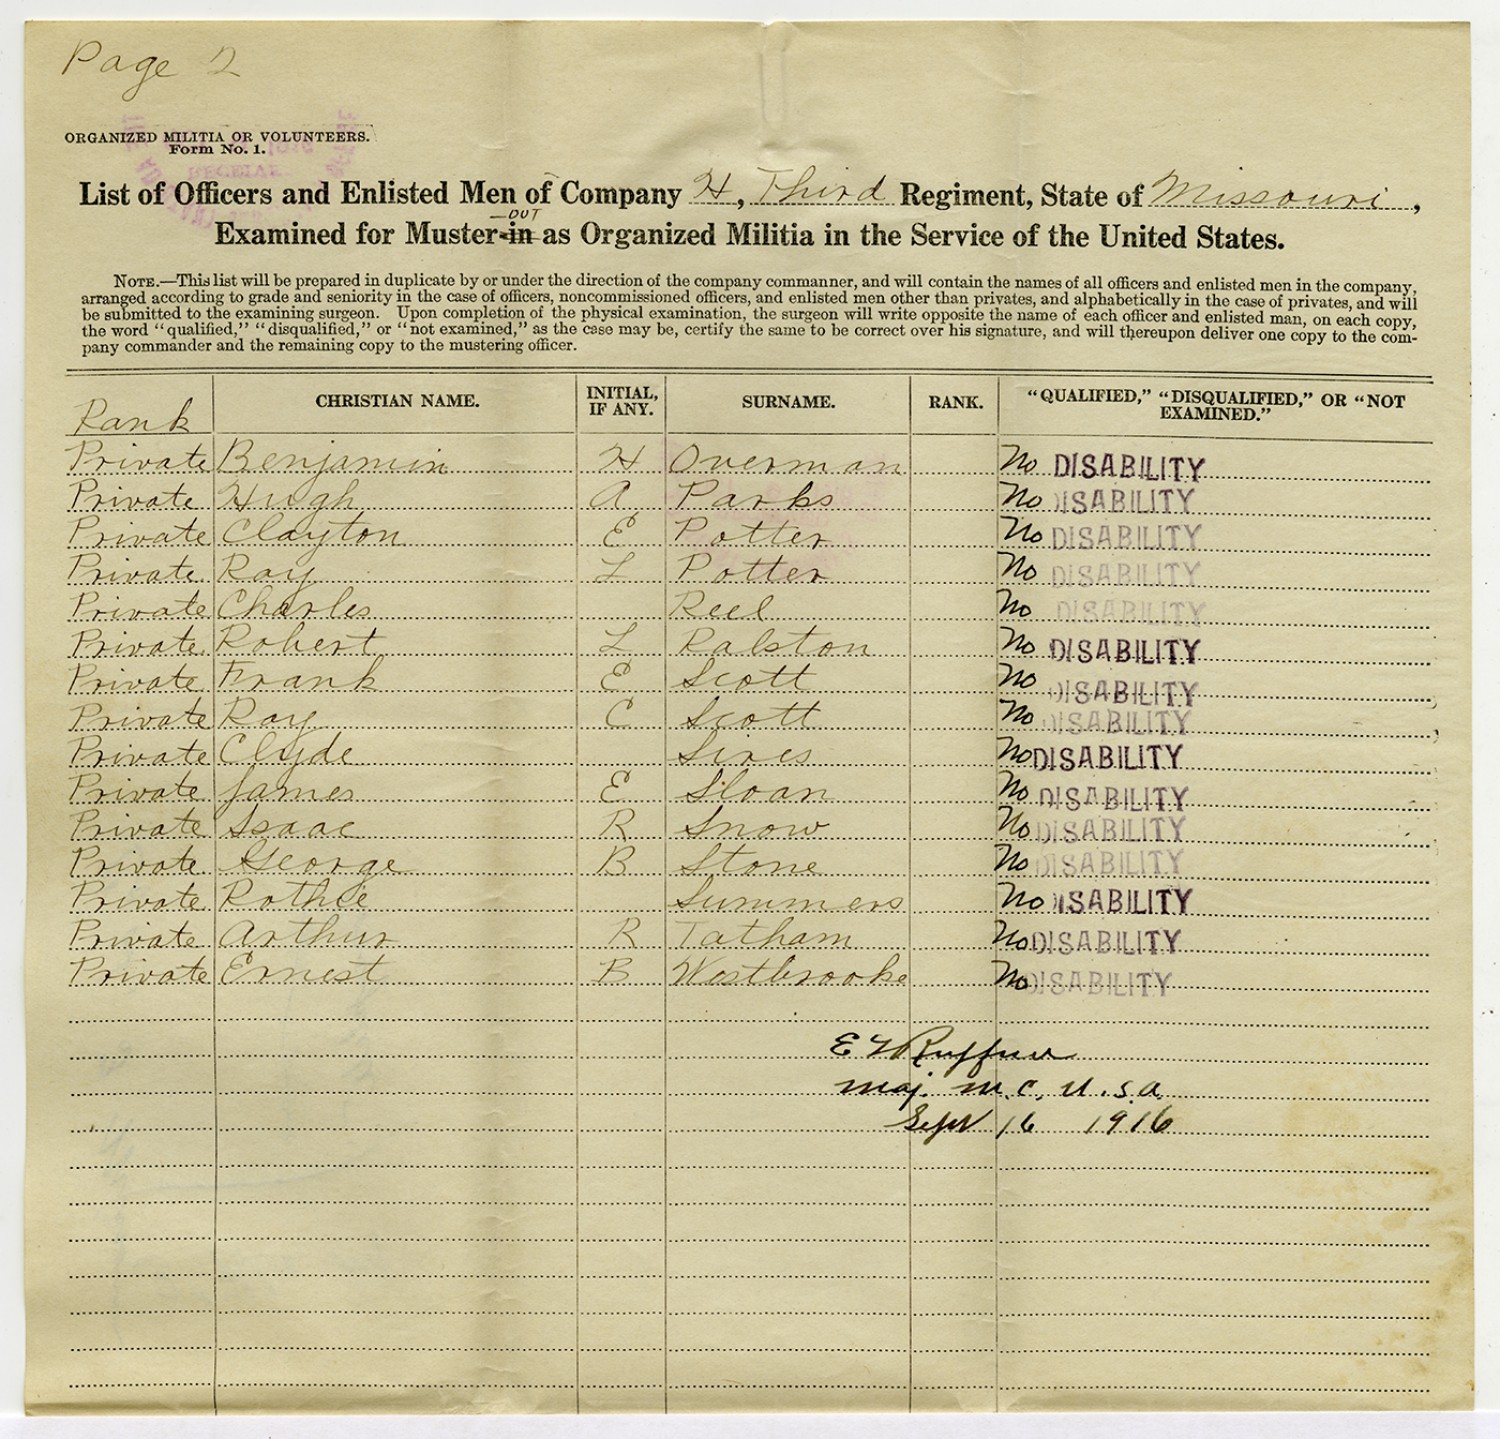 Page 2
ORGANIZED MILITIA OR VOLUNTEERS.
Form No. 1.
List of Officers and Enlisted Men of Company H, Third Regiment, State of Missouri,
OUT
Examined for Muster-in as Organized Militia in the Service of the United States.
NOTE.—This list will be prepared in duplicate by or under the direction of the company commanner, and will contain the names of all officers and enlisted men in the company,
arranged according to grade and seniority in the case of officers, noncommissioned officers, and enlisted men other than privates, and alphabetically in the case of privates, and will
be submitted to the examining surgeon. Upon completion of the physical examination, the surgeon will write opposite the name of each officer and enlisted man, on each copy,
the word "qualified," "disqualified," or "not examined," as the case may be, certify the same to be correct over his signature, and will thereupon deliver one copy to the com-
pany commander and the remaining copy to the mustering officer.
Rank CHRISTIAN NAME. INITIAL, IF ANY. SURNAME. RANK. "QUALIFIED," "DISQUALIFIED," OR "NOT EXAMINED."
Private Benjamin H Overman No DISABILITY
Private Hugh A Parks No DISABILITY
Private Clayton E Potter No DISABILITY
Private Ray L Potter No DISABILITY
Private Charles Reel No DISABILITY
Private Robert L Ralston No DISABILITY
Private Frank E Scott No DISABILITY
Private Ray C Scott No DISABILITY
Private Clyde Sires No DISABILITY
Private James E Sloan No DISABILITY
Private Isaac R Snow No DISABILITY
Private George B Stone No DISABILITY
Private Rothie Summers No DISABILITY
Private Arthur R Tatham No DISABILITY
Private Ernest B Westbrooke No DISABILITY
E L Ruffner
Maj. M.C. U.S.A.
Sept 16 1916